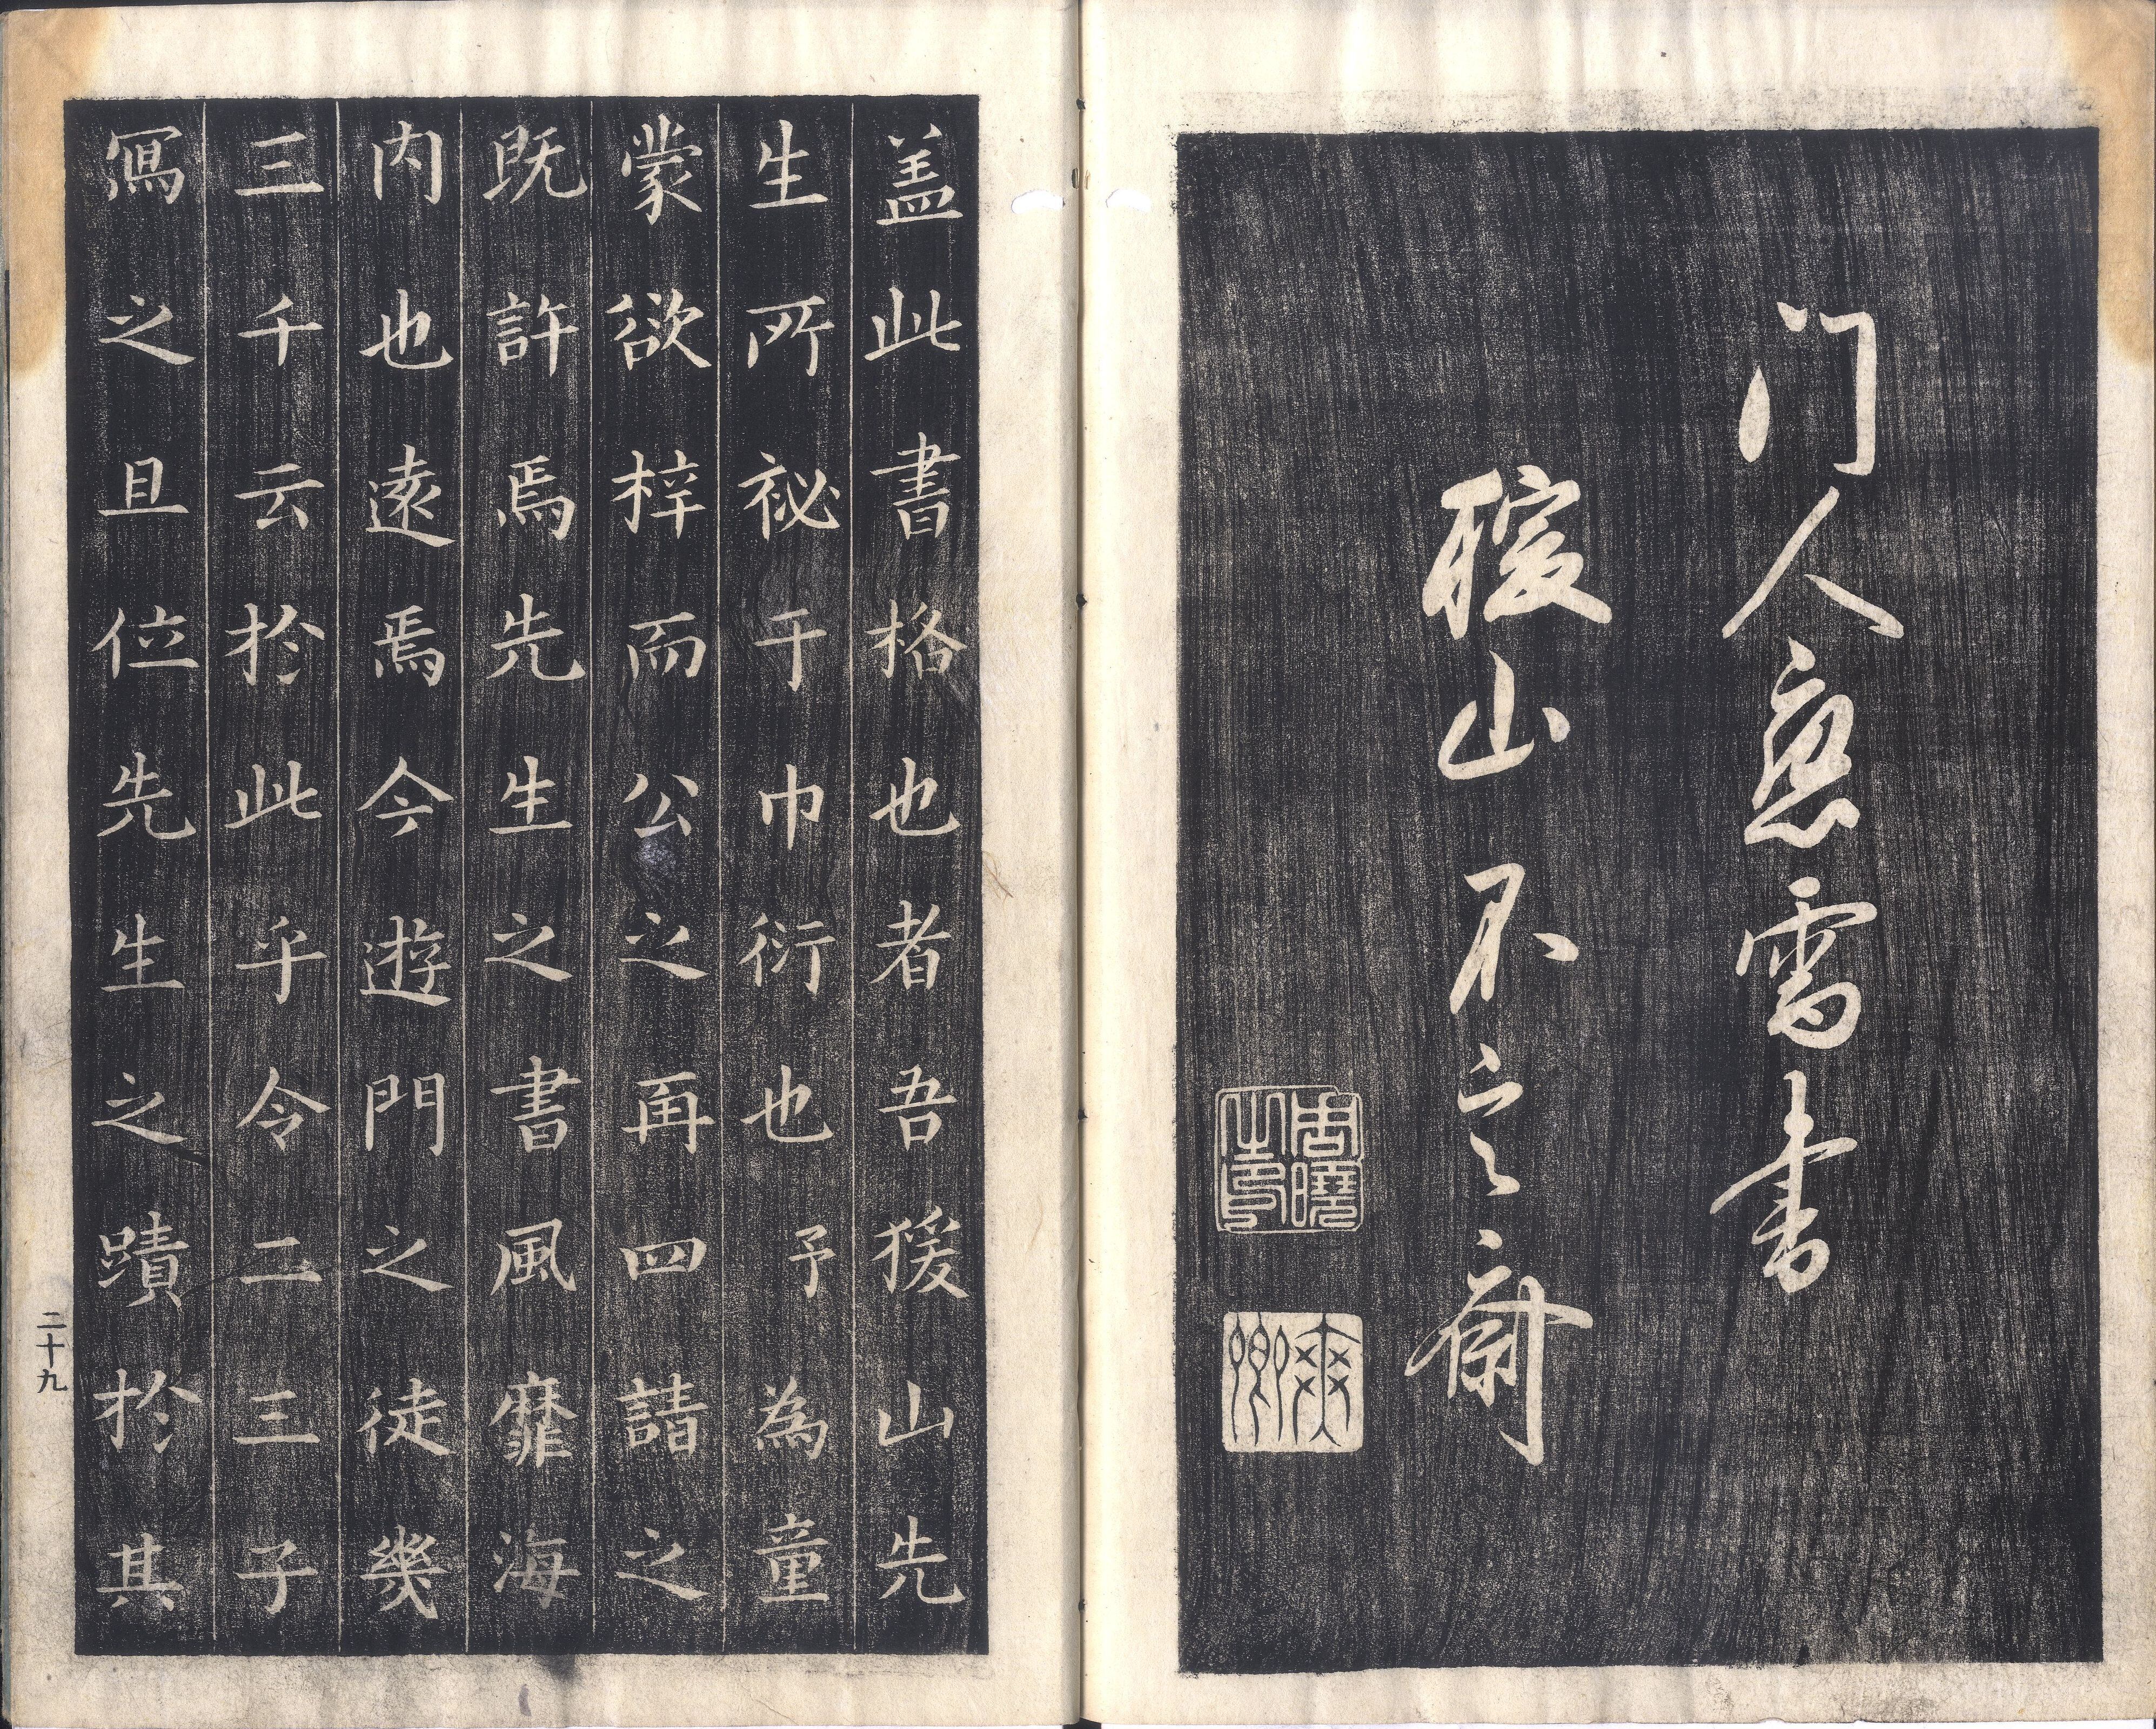 门人應需書
猨山不
周曉之印
爽卿
盖此書格也者吾猨山先
生所祕于巾衍也予為童
蒙欲梓而公之再四請之
既許焉先生之書風靡海
内也遠焉今遊門之徒幾
三千云於此乎令二三子
寫之且位先生之蹟於其
二十九